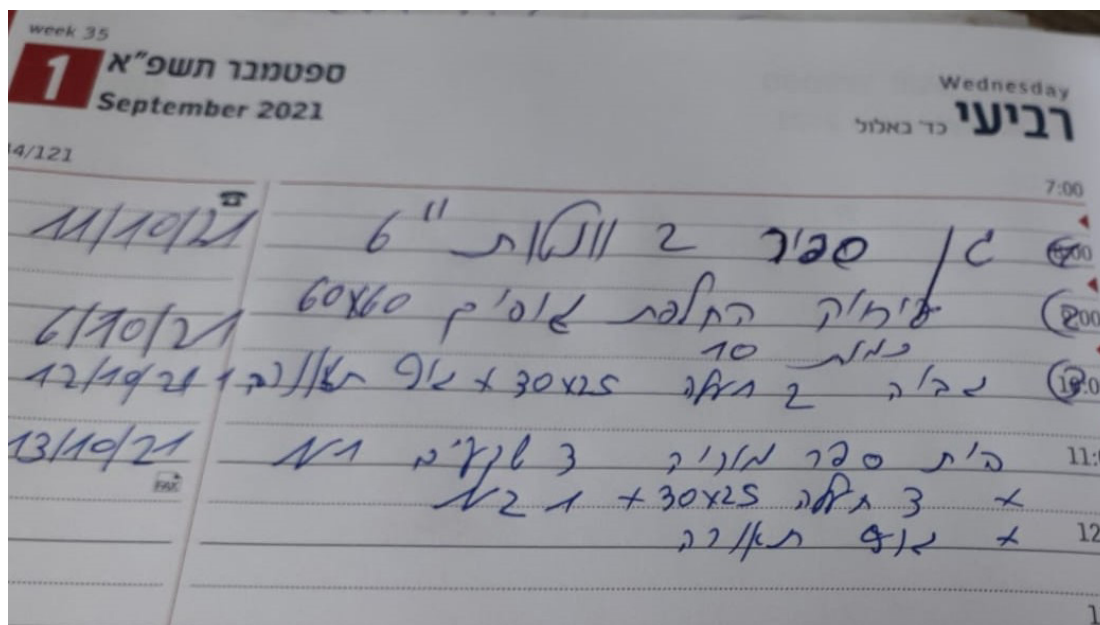 week 35
1 ספטמבר תשפ"א
September 2021
Wednesday
רביעי כד' באלול
4/121
7:00
11/10/21 גן ספיר 2 וונטות "6
עיריה החלפת גופים 60x60
6/10/21 כמות 10
12/10/21 גביה 2 תעלה 30x25 + גוף תאורה 1
13/10/21 בית ספר מוריה 3 שקעים 1א 11:
FAX
+ 3 תעלה 30x25 + 1 2א
+ גוף תאורה 12
1